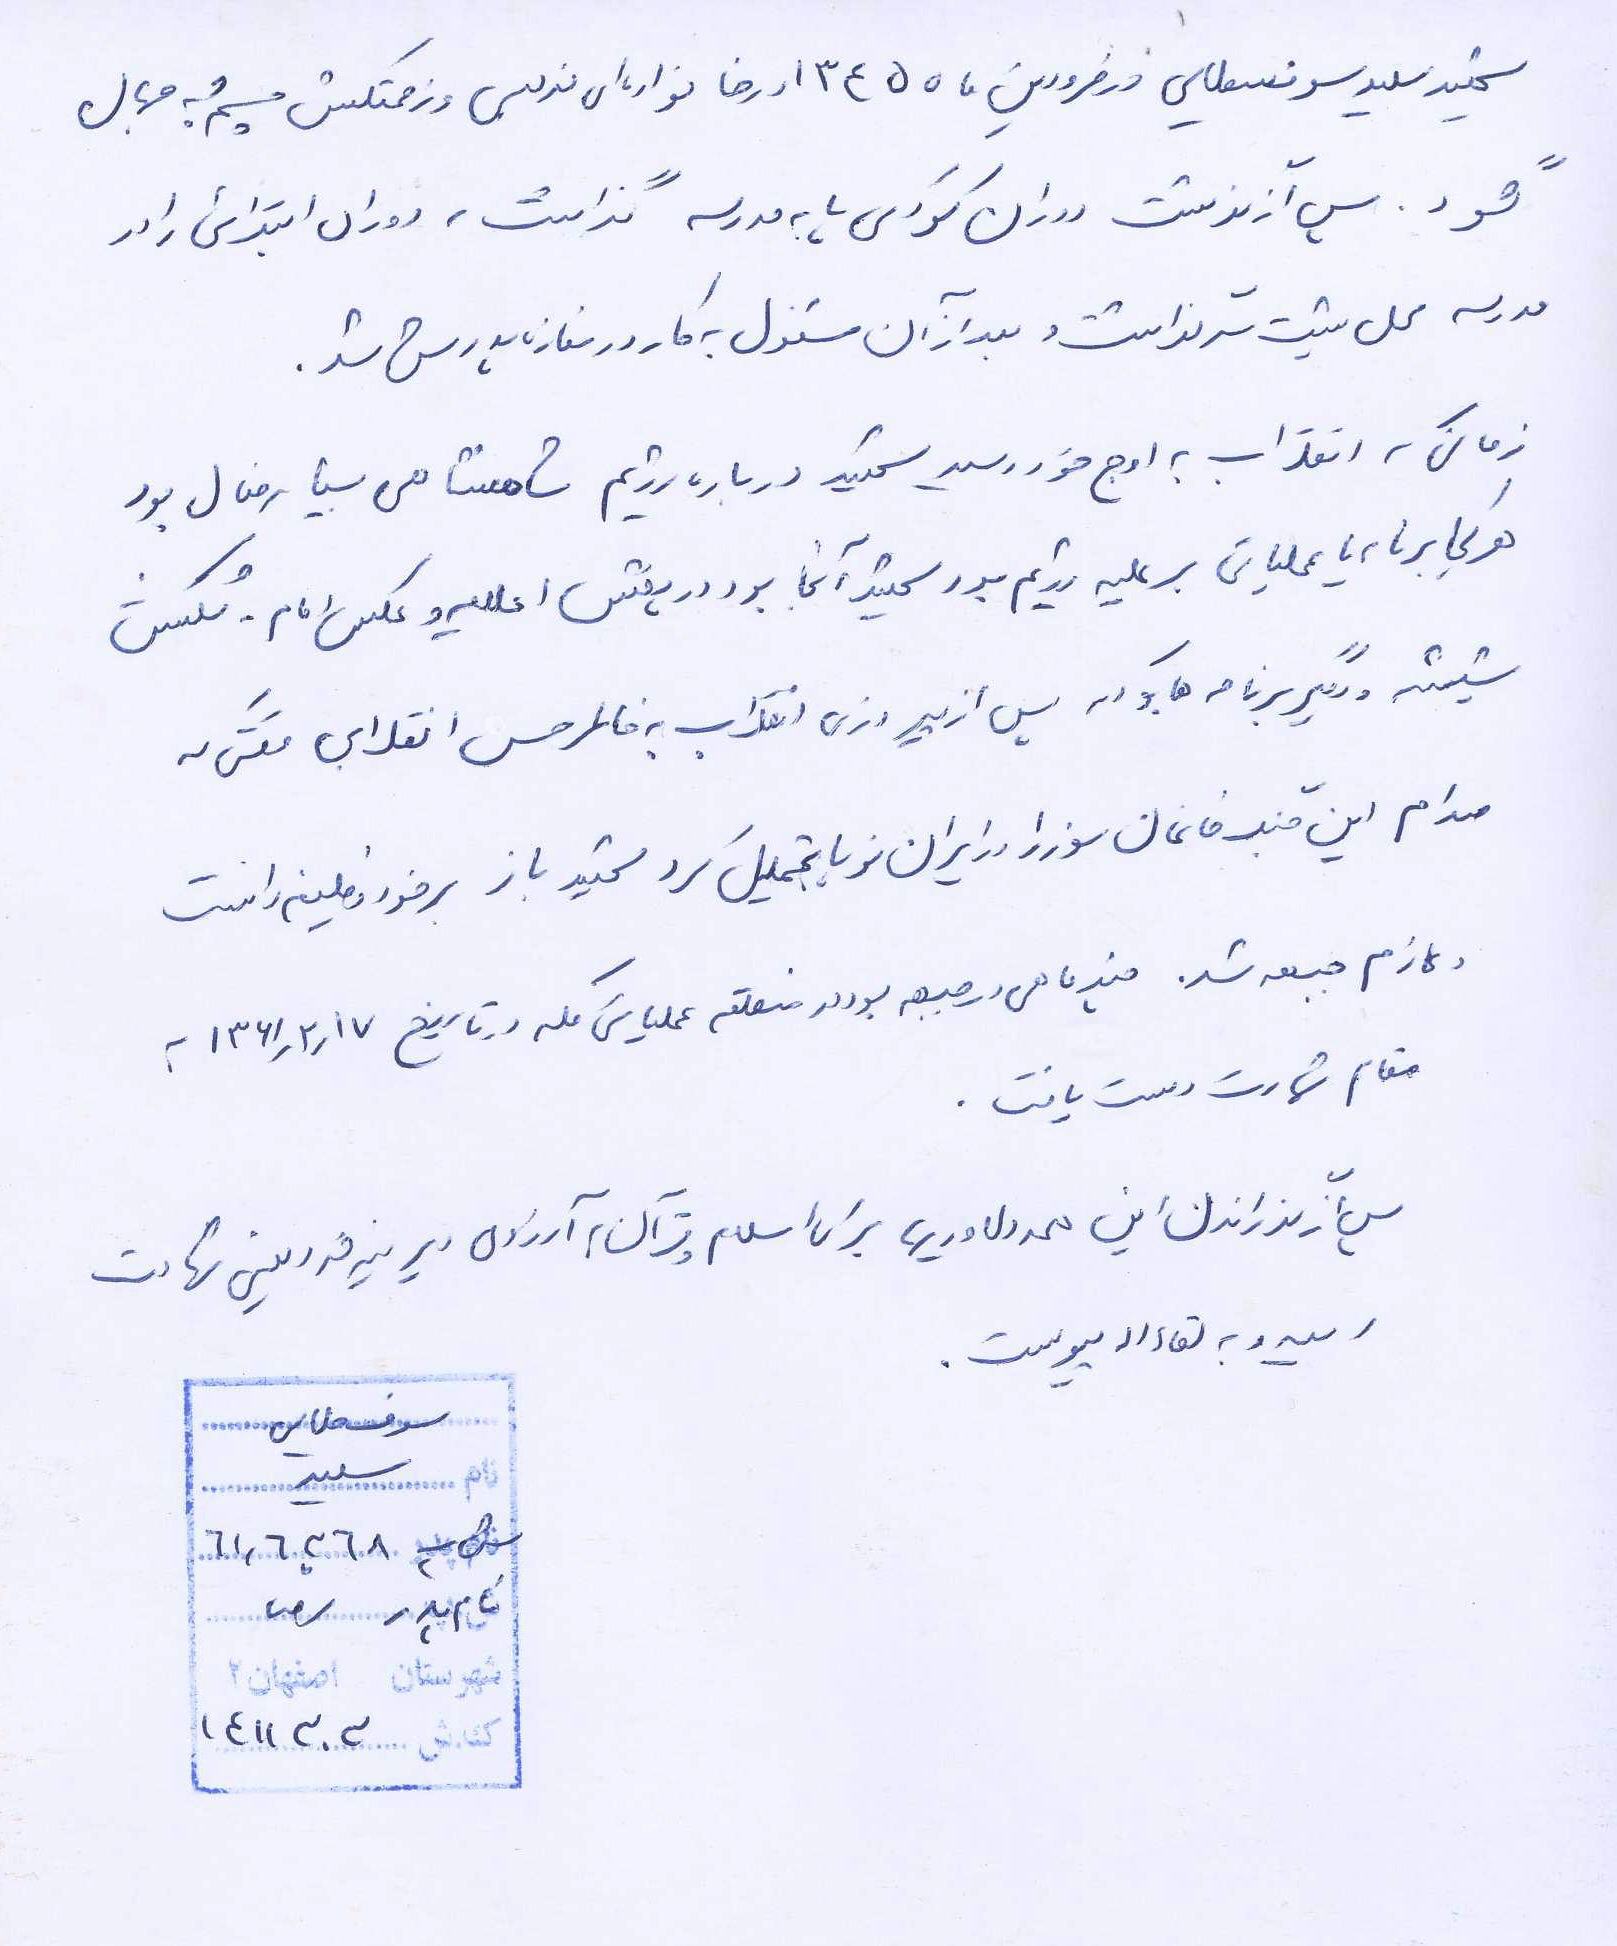 شهید سعید سوفسطایی در فروردین ماه ۱۳٤۵ در خانواده‌ای مذهبی و زحمتکش چشم به جهان
گشود. پس از گذشت دوران کودکی پا به مدرسه گذاشت و دوران ابتدائی را در
مدرسه محل پشت سر گذاشت و بعد از آن مشغول به کار در مغازه پدرش شد.
زمانی که انقلاب به اوج خود رسید شهید درباره رژیم شاهنشاهی بسیار فعال بود
هر کجا برنامه یا عملیاتی بر علیه رژیم بود شهید آنجا بود در پخش اعلامیه و عکس امام
شیشه و دیگر برنامه ها که پس از پیروزی انقلاب به خاطر حس انقلابی
صدام این جنگ خانمان سوز را در ایران نوپا تحمیل کرد شهید باز بر خود وظیفه دانست
و عازم جبهه شد. چند ماهی در جبهه بود در منطقه عملیاتی در تاریخ ۱۳۶۱٫۲٫۱۷ به
مقام شهادت دست یافت.
پس از گذراندن این همه دلاوریها برای اسلام و قرآن به آرزوی دیرینه خود یعنی شهادت
رسید و به لقاء الله پیوست.
سوفسطایی
نام سعید
٦۱٫٦۲٦۸
نام پدر رضا
شهرستان اصفهان ۲
کد.ش ۱٤۱۱۳۰۳